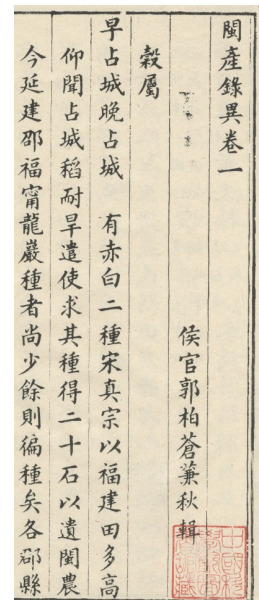 閩產錄異卷一
侯官郭柏蒼蒹秋輯
穀屬
早占城晚占城　有赤白二種宋真宗以福建田多高
仰聞占城稻耐旱遣使求其種得二十石以遺閩農
今延建邵福甯龍巖種者尚少餘則徧種矣各郡縣